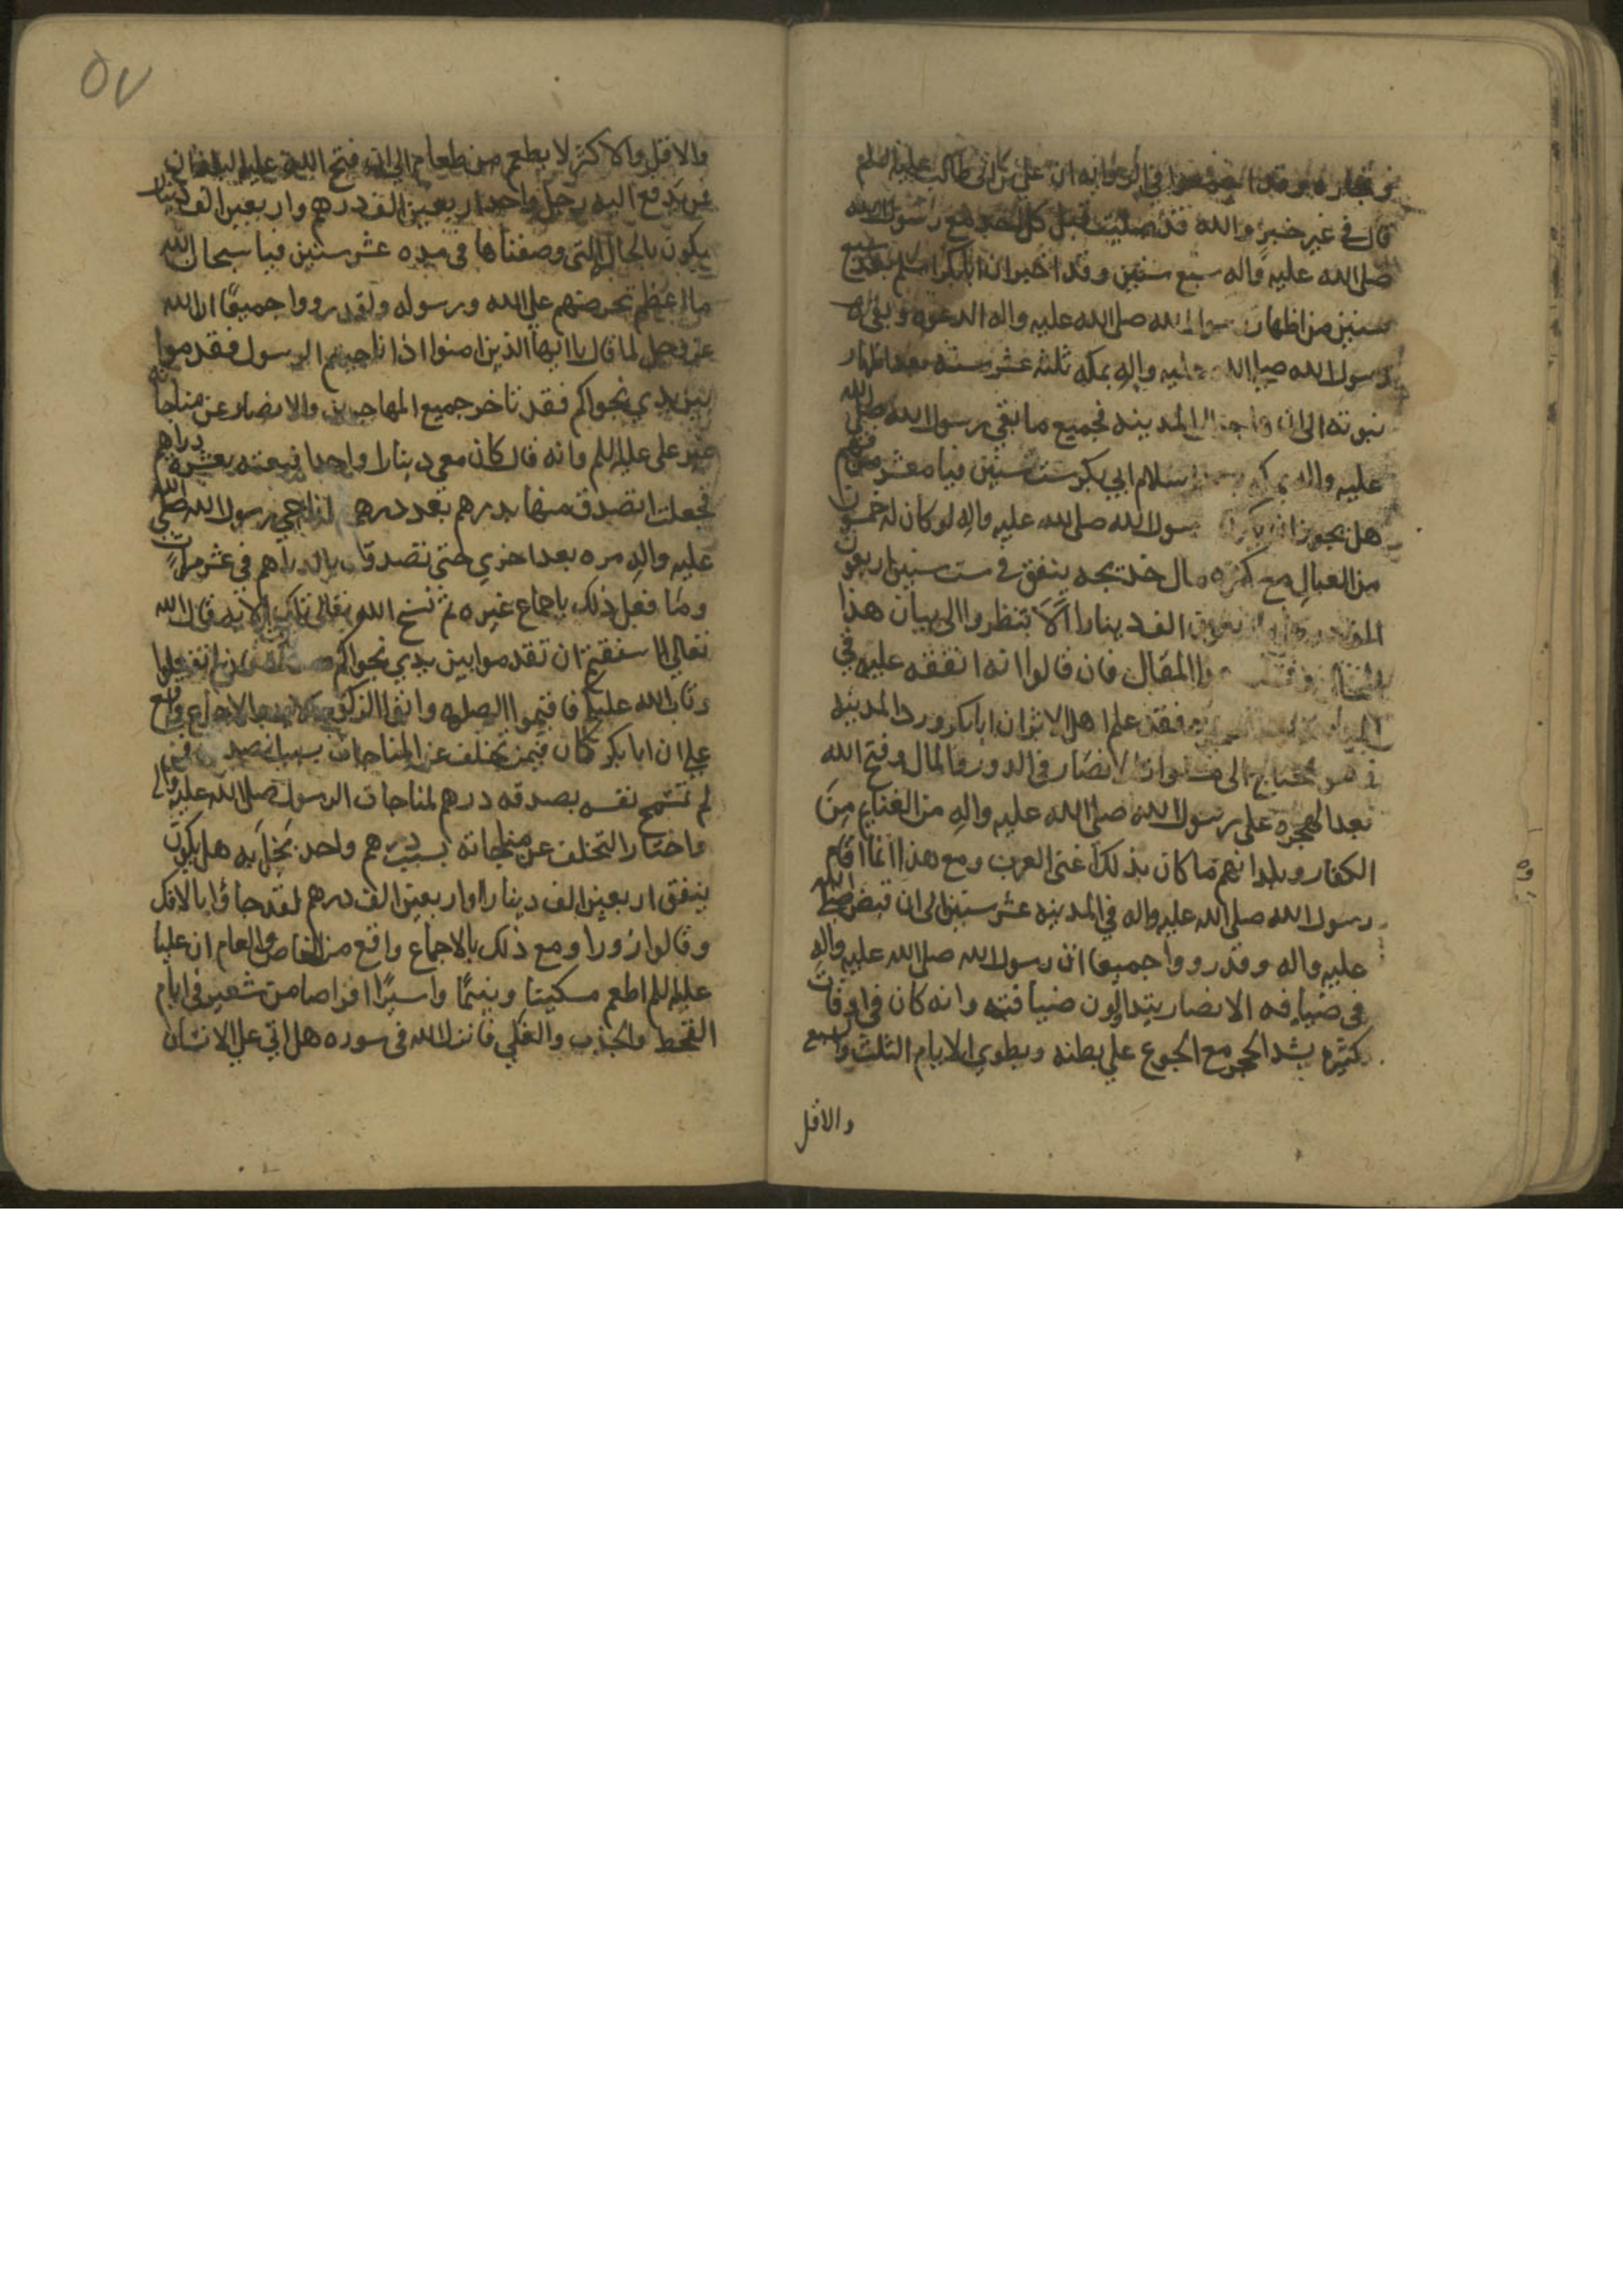 قال في غير خبر والله قد صليت قبل كل احد مع رسول الله
صلى الله عليه واله سبع سنين وقد اخبر ان ابابكر اسلم بعد سبع
سنين من اظهار رسول الله صلى الله عليه واله الدعوه وبقي
رسول الله صلى الله عليه واله بمكه ثلثه عشر سنه بعد اظهار
نبوته الى ان هاجر الى المدينه فجميع ما بقي رسول الله صلى الله
عليه واله بمكه اسلام ابي بكر ست سنين فيا معشر من فهم
هل يجوز ان يكون رسول الله صلى الله عليه واله لو كان له خمسون
من العيال مع كثره مال خديجه ينفق في ست سنين اربعون
الف دينارا الا تنظروا الى بيان هذا
المقال فان قالوا انه انفقه عليه في
فقد علم اهل الاثر ان ابابكر ورد المدينه
وهو محتاج الى الانصار في الدور والمال وفتح الله
بعد الهجره على رسول الله صلى الله عليه واله من الغنايم من
الكفار وبلدانهم ما كان بذلك غنى العرب ومع هذا انما اقام
رسول الله صلى الله عليه واله في المدينه عشر سنين الى ان قبض صلى الله
عليه واله وقد رووا جميعا ان رسول الله صلى الله عليه واله
في ضيافه الانصار يتداولون ضيافته وانه كان في اوقات
كثيره يشد الحجر مع الجوع على بطنه ويطوي الايام الثلث والسبع
والاقل
٥٧
والاقل والاكثر لا يطعم من طعام الى ان فتح الله عليه البلدان
فمن دفع اليه رجل واحد اربعين الف درهم واربعين الف دينار
يكون بالحال التي وصفناها في مده عشر سنين فيا سبحان الله
ما اعظم تخرصهم على الله ورسوله ولقد رووا جميعا ان الله
عز وجل لما قال يا ايها الذين امنوا اذا ناجيتم الرسول فقدموا
بين يدي نجواكم فقد تاخر جميع المهاجرين والانصار عن مناجاته
غير علي عليه السلم فانه قال كان معي دينارا واحدا فبعته بعشره دراهم
فجعلت اتصدق منها بدرهم بعد درهم اناجي رسول الله صلى الله
عليه واله مره بعد اخري حتى تصدقت بالدراهم في عشر مرات
وما فعل ذلك باجماع غيره ثم نسخ الله تعالى تلك الايه فقال الله
تعالى ااشفقتم ان تقدموا بين يدي نجواكم صدقات فاذ لم تفعلوا
وتاب الله عليكم فاقيموا الصلوه واتوا الزكوة بالاجماع واقع
على ان ابابكر كان فيمن تخلف عن المناجات بسبب فمن
لم تسمح نفسه بصدقه درهم لمناجات الرسول صلى الله عليه واله
واختار التخلف عن مناجاته بسبب درهم واحد بخل به هل يكون
ينفق اربعين الف دينارا واربعين الف درهم لقد جاؤا بالافك
وقالوا زورا ومع ذلك بالاجماع واقع من الخاص والعام ان عليا
عليه السلم اطعم مسكينا ويتيما واسيرا اقراصا من شعير في ايام
القحط والجذب والغلي فانزل الله في سوره هل اتي على الانسان